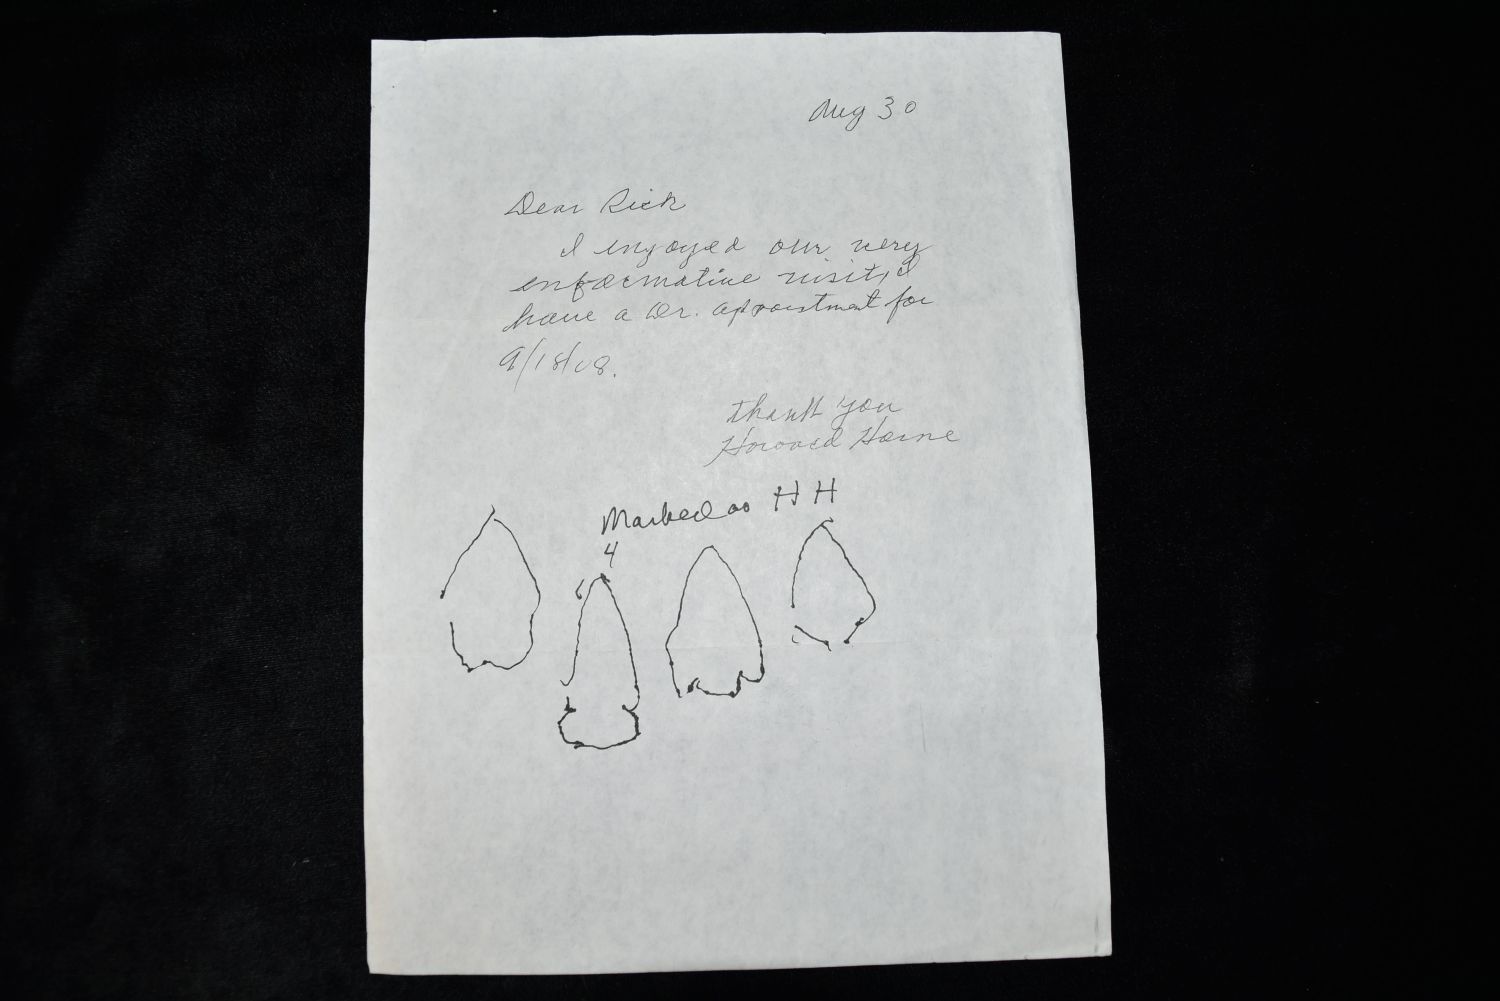 Aug 30
Dear Rick
I enjoyed our very
informative visit, I
have a Dr. appointment for
9/18/08.
Thank you
Howard Horne
Marked as HH
4